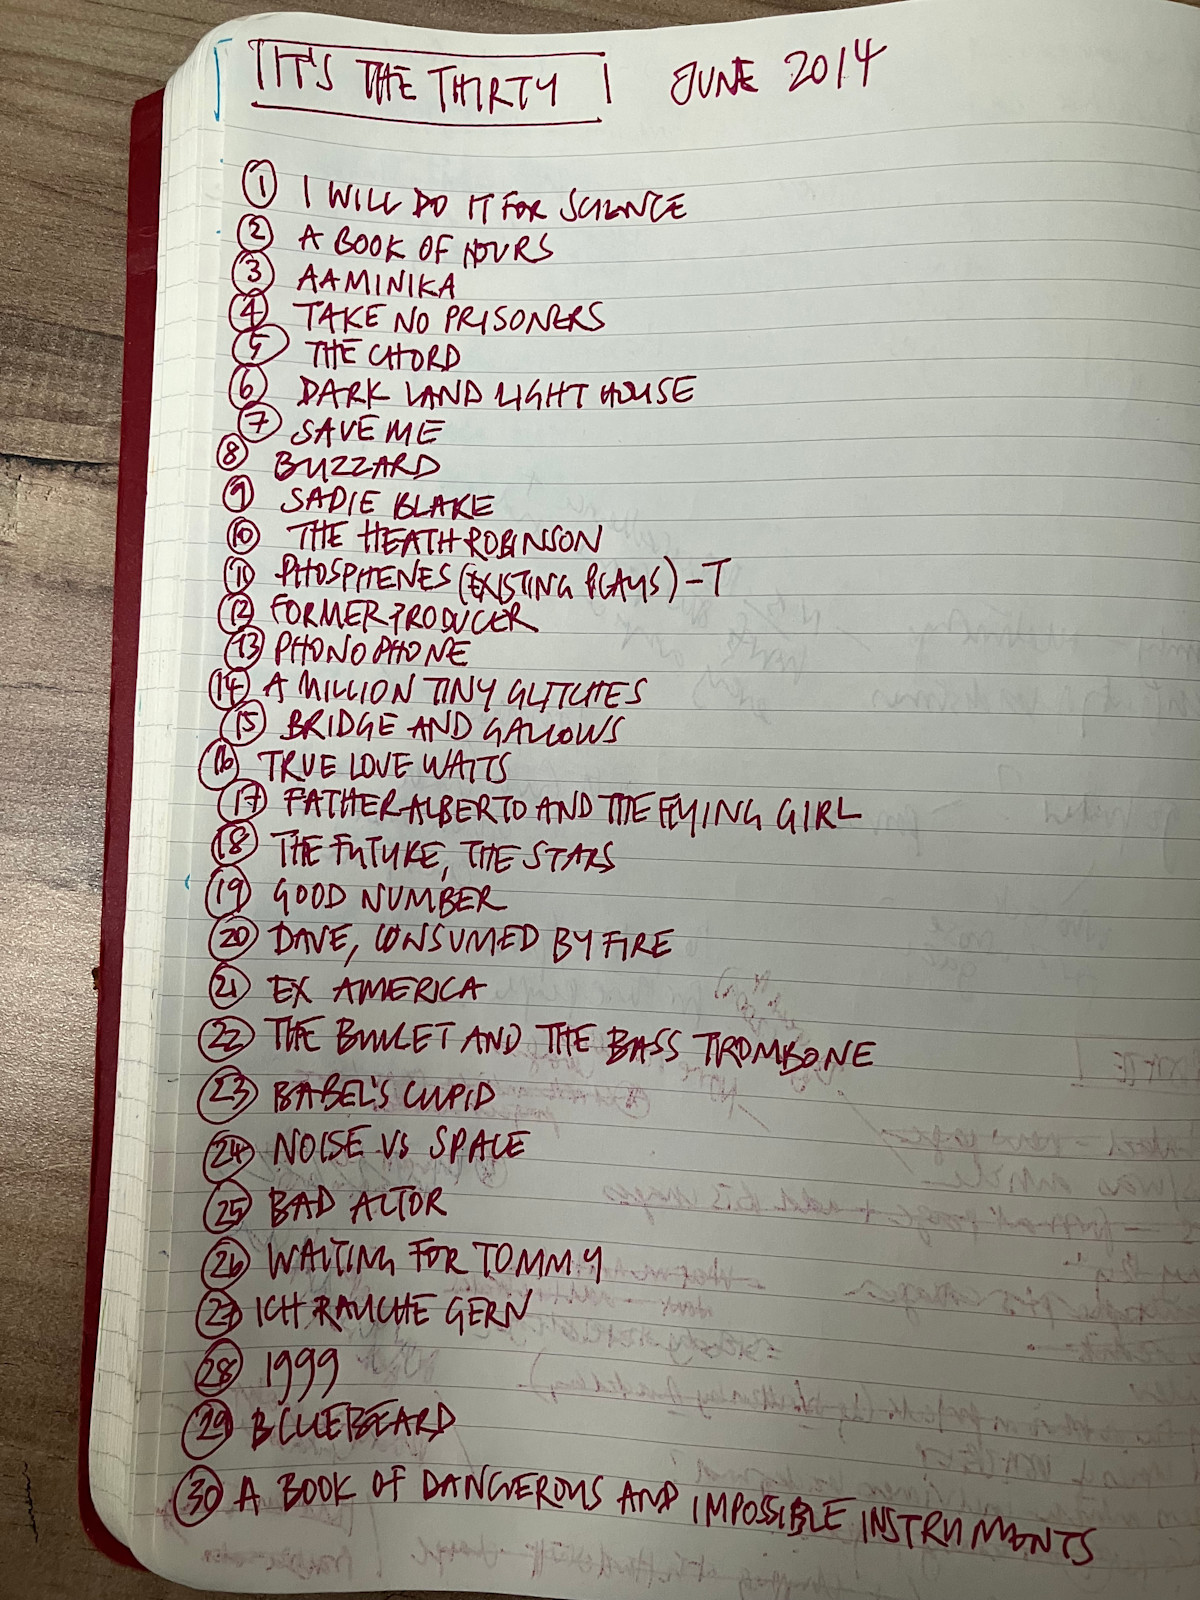 IT'S THE THIRTY JUNE 2014
1 I WILL DO IT FOR SCIENCE
2 A BOOK OF HOURS
3 AAMINIKA
4 TAKE NO PRISONERS
5 THE CHORD
6 DARK LAND LIGHT HOUSE
7 SAVE ME
8 BUZZARD
9 SADIE BLAKE
10 THE HEATH ROBINSON
11 PHOSPHENES (EXISTING PLAYS) - T
12 FORMER PRODUCER
13 PHONOPHONE
14 A MILLION TINY GLITCHES
15 BRIDGE AND GALLOWS
16 TRUE LOVE WAITS
17 FATHER ALBERTO AND THE FLYING GIRL
18 THE FUTURE, THE STARS
19 GOOD NUMBER
20 DAVE, CONSUMED BY FIRE
21 EX AMERICA
22 THE BULLET AND THE BASS TROMBONE
23 BABEL'S CUPID
24 NOISE VS SPACE
25 BAD ACTOR
26 WAITING FOR TOMMY
27 ICH RAUCHE GERN
28 1999
29 BLUEBEARD
30 A BOOK OF DANGEROUS AND IMPOSSIBLE INSTRUMENTS